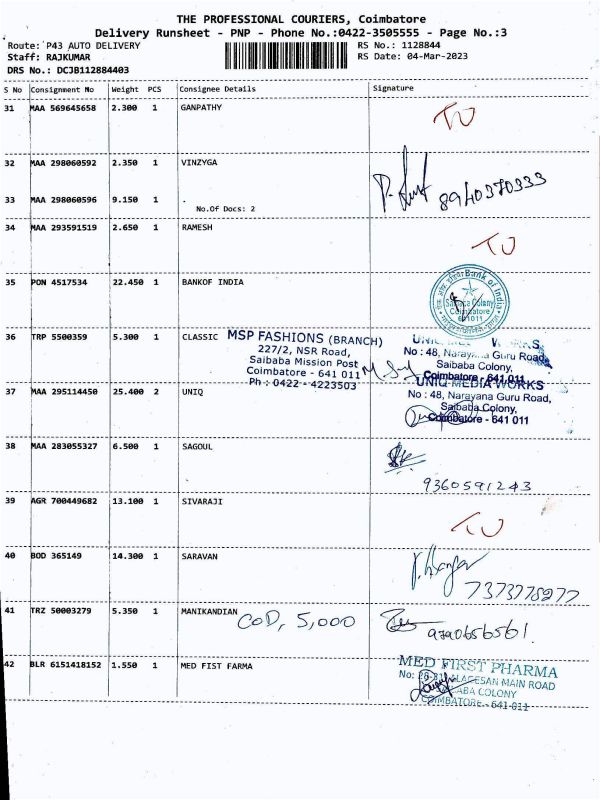 THE PROFESSIONAL COURIERS, Coimbatore
Delivery Runsheet - PNP - Phone No.:0422-3505555 - Page No.:3
Route: P43 AUTO DELIVERY
RS No.: 1128844
Staff: RAJKUMAR
RS Date: 04-Mar-2023
DRS No.: DCJB112884403
S No Consignment No Weight PCS Consignee Details Signature
31 MAA 569645658 2.300 1 GANPATHY
32 MAA 298060592 2.350 1 VINZYGA
8940370333
33 MAA 298060596 9.150 1 .
No.Of Docs: 2
34 MAA 293591519 2.650 1 RAMESH
35 PON 4517534 22.450 1 BANKOF INDIA
Bank of India
Saibaba Colony
Coimbatore
641011
36 TRP 5500359 5.300 1 CLASSIC
MSP FASHIONS (BRANCH)
227/2, NSR Road,
Saibaba Mission Post
Coimbatore - 641 011
Ph : 0422 - 4223503
No : 48, Narayana Guru Road,
Saibaba Colony,
Coimbatore - 641 011
37 MAA 295114450 25.400 2 UNIQ
UNIQ MEDIA WORKS
No : 48, Narayana Guru Road,
Saibaba Colony,
Coimbatore - 641 011
38 MAA 283055327 6.500 1 SAGOUL
9360591243
39 AGR 700449682 13.100 1 SIVARAJI
40 BOD 365149 14.300 1 SARAVAN
7373778277
41 TRZ 50003279 5.350 1 MANIKANDIAN
COD, 5,000
9790656561.
42 BLR 6151418152 1.550 1 MED FIST FARMA
MED FIRST PHARMA
MAIN ROAD
COLONY
COIMBATORE - 641 011